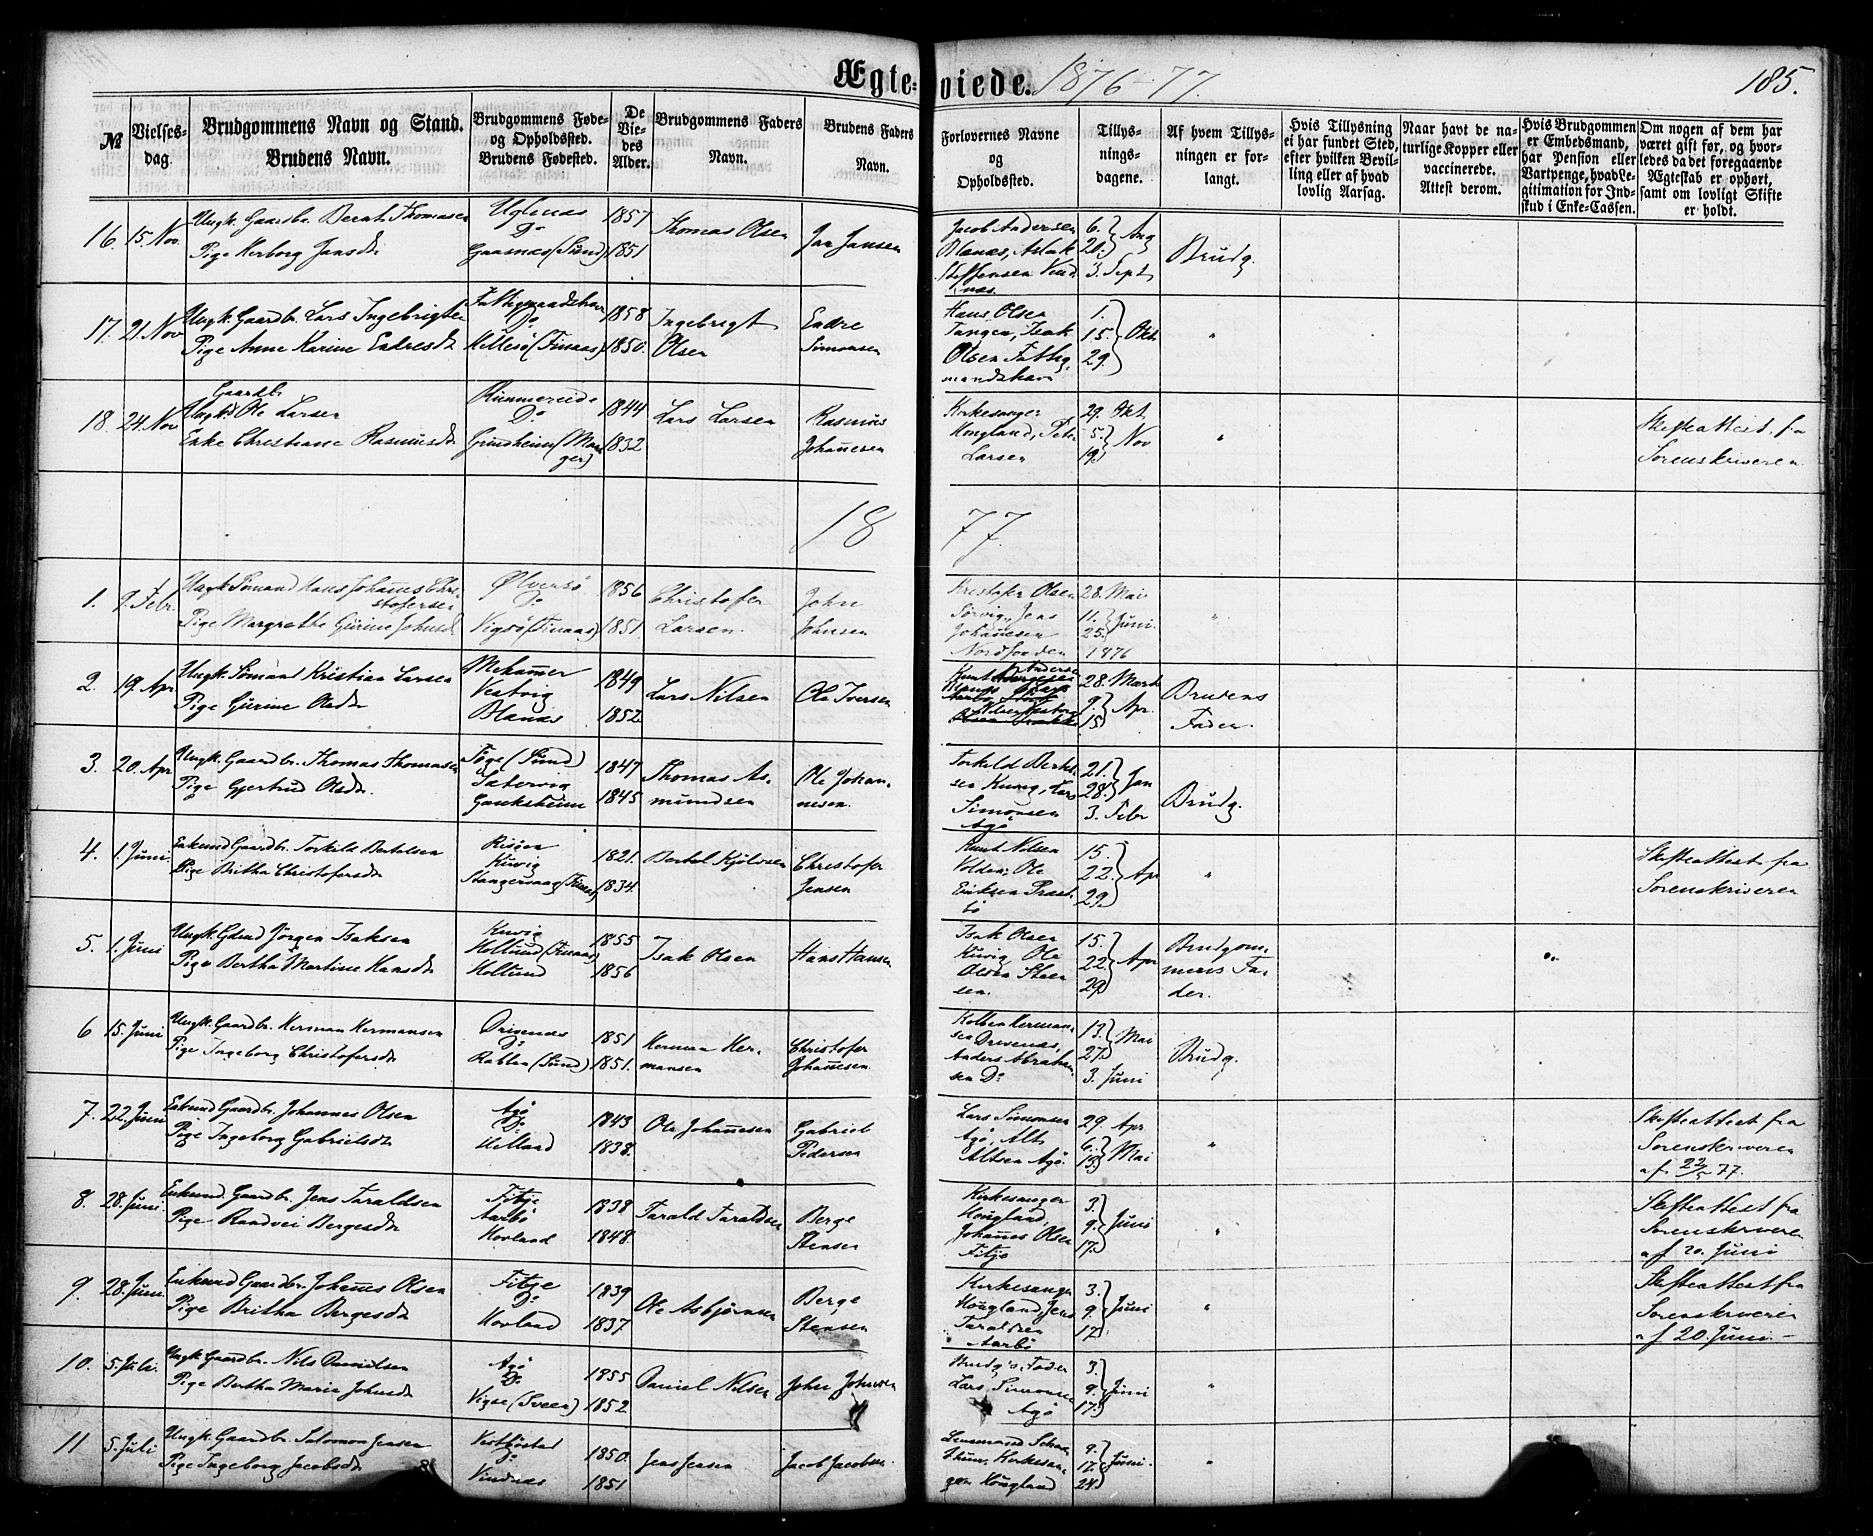 Ægteviede. 1876-77.
185.
№
Vielses-dag.
Brudgommens Navn og Stand. Brudens Navn.
Brudgommens Føde- og Opholdssted. Brudens Fødested.
De Viedes Alder.
Brudgommens Faders Navn.
Brudens Faders Navn.
Forlovernes Navne og Opholdssted.
Tillysningsdagene.
Af hvem Tillysningen er forlangt.
Hvis Tillysning ei har fundet Sted, efter hvilken Bevilling eller af hvad lovlig Aarsag.
Naar havt de naturlige Kopper eller vaccinerede. Attest derom.
Hvis Brudgommen er Embedsmand, har Pension eller Vartpenge, hvad Legitimation for Indskud i Enke-Cassen.
Om nogen af dem har været gift før, og hvorledes da det foregaaende Ægteskab er ophørt, samt om lovligt Skifte er holdt.
16. 15 Nov. Ungk. Gaardbr. Berent Thomasen Uglenæs Do 1857 Thomas Olsen Jan Jansen Jacob Andersen 6. 20. Aug Brudg.
Pige Herborg Jansdr Gaasnæs (Sund) 1851 Blanæs, Aslak Steffensen 3. Sept
17. 21. Nov Ungk. Gaardbr. Lars Ingebrigtsen Fattigmandshavn Do 1858 Ingebrigt Olsen Endre Simonsen Hans Olsen 1. 15. 29. Okt. "
Pige Anne Karine Endresdr Hellesø (Finaas) 1850. Tangen, Isak Olsen Fattigmandshavn
18. 24. Nov Gaardbr. Ungk. Ole Larsen Rimmereide Do 1844 Lars Larsen Rasmus Johannesen Kirkesanger 29. Okt. 5. 19. Nov " Skifteattest fra
Enke Christiane Rasmusdr Grindheim (Manger) 1832 Hougland, Peter Larsen Sorenskriveren
18 77.
1. 9. Febr. Ungk. Sømand Hans Johannes Christofersen Ølversø Do 1856 Christofer Larsen. John Johnsen Kristofer Olsen 28. Mai "
Pige Margrethe Gurine Johnsdr Vigsø (Finaas) 1851 Sørvig, Jens Johannesen 11. 25. Juni. 1876
2. 19. Apr Ungk. Sømand Kristian Larsen Mehammer Vestvig 1849 Lars Nilsen Ole Iversen Knut Andersen 28. Marts Brudens
Pige Gurine Olsdr Blanæs 1852 9. 15 Apr. Fader.
3. 20. Apr Ungk. Gaardbr. Thomas Thomasen Toge (Sund) Sætervig 1847 Thomas Asmundsen Ole Johannesen. Torkild Bertelsen 21. 28. Jan Brudg.
Pige Gjertrud Olsdr. Gauksheim 1845 Kuvig, Lars Simonsen Agø 3. Febr
4. 1. Juni Enkemd Gaardbr. Torkild Bertelsen Risøen Kuvig 1821. Bertel Kjølvsen Christofer Jensen Knut Nilsen 15. 22. 29. Apr " Skifteattest fra
Pige Britha Christofersdr Stangervaag (Finaas) 1834. Volden, Ole Eriksen Prestbø Sorenskriveren
5. 1. Juni Ungk. Gdmd Jørgen Isaksen Kuvig Hollund (Finaas) 1855 Isak Olsen Hans Hansen Isak Olsen 15. 22. 29. Apr Brudgommens Fader.
Pige Bertha Martine Hansdr Hollund 1856 Kuvig, Ole Olsen
6 15. Juni Ungk. Gaardbr. Herman Hermansen Drivenæs Do 1851 Herman Hermansen Christofer Johannesen. Kolben Hermansen 13. 27. Mai Brudg.
Pige Ingeborg Christofersdr Rabben (Sund) 1851. Drevenæs, Anders Abrahamsen Do 3. Juni
7. 22. Juni Enkemd Gaardbr. Johannes Olsen Agø Do 1843 Ole Johannesen Gabriel Pedersen Lars Simonsen 29. Apr " Skifteattest fra
Pige Ingeborg Gabrielsdr Helland 1838. Agø, Alt Altsen Agø. 6. 13. Mai Sorenskriveren af 22/5 77.
8. 28. Juni Enkemd. Gaardbr. Jens Taraldsen Fitje Aarbø 1838 Tarald Taraldsen Berge Stensen Kirkesanger 3. 9. 17. Juni " Skifteattest fra
Pige Randvei Bergesdr Hovland 1848. Hougland, Johannes Olsen Fitje Sorenskriveren af 20. Juni
9. 28. Juni Enkemd Gaardbr. Johannes Olsen Fitje Do 1839 Ole Asbjørnsen Berge Stensen Kirkesanger 3. 9. 17. Juni " Skifteattest fra
Pige Britha Bergesdr Hovland 1837 Hougland, Jens Taraldsen Aarbø Sorenskriveren af 20. Juni
10. 5. Juli. Ungk. Gaardbr. Nils Danielsen Agø Do 1855 Daniel Nilsen John Johnsen Brudg's Fader 3. 9. 17. Juni "
Pige Bertha Marie Johnsdr Vigsø (Sveen) 1852. Lars Simonsen Agø
11 5. Juli Ungk. Gaardbr. Salomon Jensen Vestbøstad Do 1850. Jens Jensen Jacob Jacobsen Lensmand 9. 17. 24. Juni. "
Pige Ingeborg Jacobsdr Vindnæs 1851 Kirkesanger Hougland